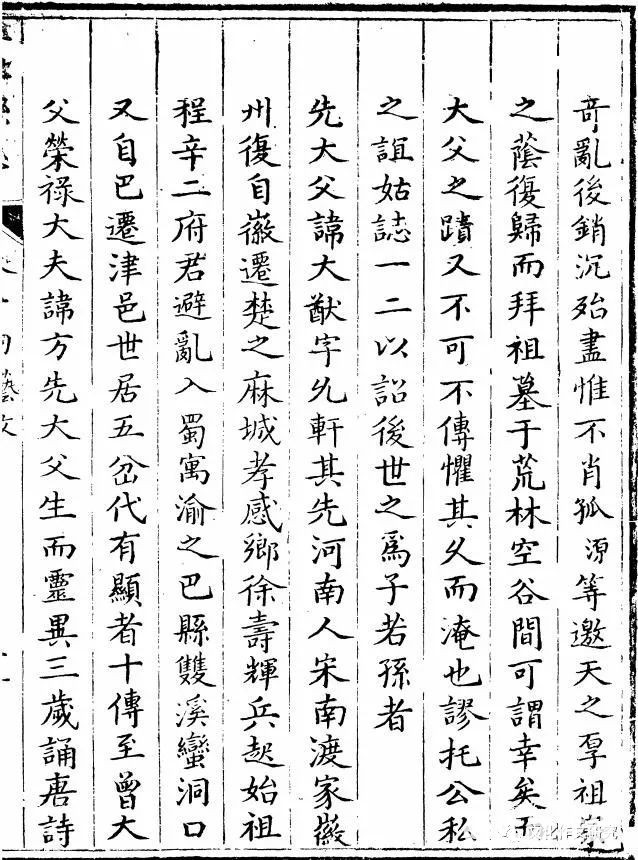 竒亂後銷沉殆盡惟不肖孤源等邀天之孠祖宗
之蔭復歸而拜祖墓于荒林空谷間可謂幸矣王
大父之蹟又不可不傳懼其久而淹也謬托公私
之誼姑誌一二以詔後世之爲子若孫者
先大父諱大猷字允軒其先河南人宋南渡家徽
州復自徽遷楚之麻城孝感鄉徐壽輝兵起始祖
程辛二府君避亂入蜀寓渝之巴縣雙溪蠻洞口
又自巴遷津邑世居五岔代有顯者十傳至曾大
父榮禄大夫諱方先大父生而靈異三歲誦唐詩
藝文